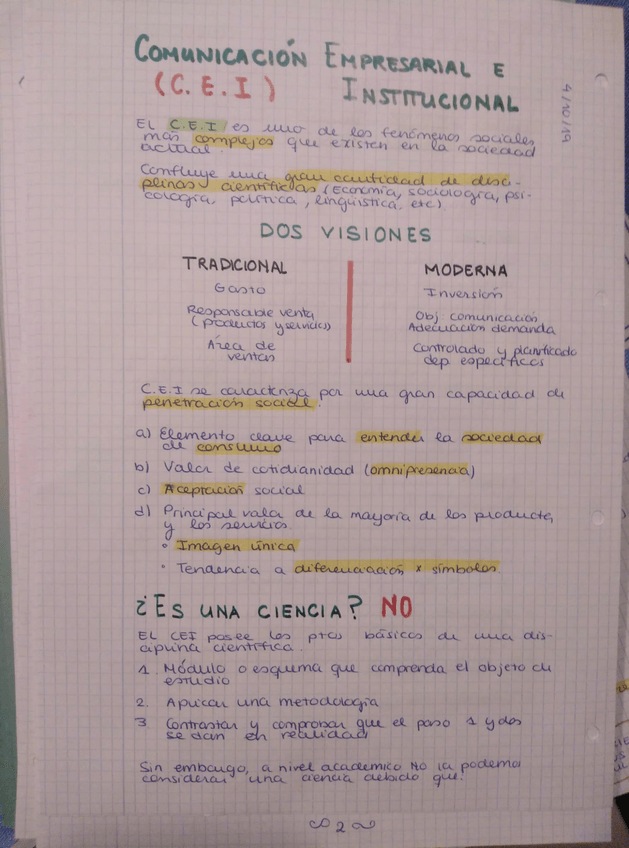 COMUNICACIÓN EMPRESARIAL E
(C.E.I) INSTITUCIONAL
4/10/19
EL C.E.I es uno de los fenómenos sociales
más complejos que existen en la sociedad
actual.
Confluye una gran cantidad de disci-
plinas científicas (Economía, sociología, psi-
cología, política, lingüística, etc)
DOS VISIONES
TRADICIONAL
Gasto
Responsable venta
(productos y servicios)
Área de
ventas
MODERNA
Inversión
Obj. comunicación
Adecuación demanda
Controlado y planificado
dep. específicos
C.E.I se caracteriza por una gran capacidad de
penetración social.
a) Elemento clave para entender la sociedad
de consumo
b) Valor de cotidianidad (omnipresencia)
c) Aceptación social
d) Principal valor de la mayoría de los productos
y los servicios.
• Imagen única
• Tendencia a diferenciación x símbolos.
¿ES UNA CIENCIA? NO
EL CEI posee los ptos básicos de una dis-
ciplina científica.
1 Módulo o esquema que comprenda el objeto de
estudio
2. Aplicar una metodología
3. Contrastar y comprobar que el paso 1 y dos
se dan en realidad
Sin embargo, a nivel academico NO la podemos
considerar una ciencia debido que:
2